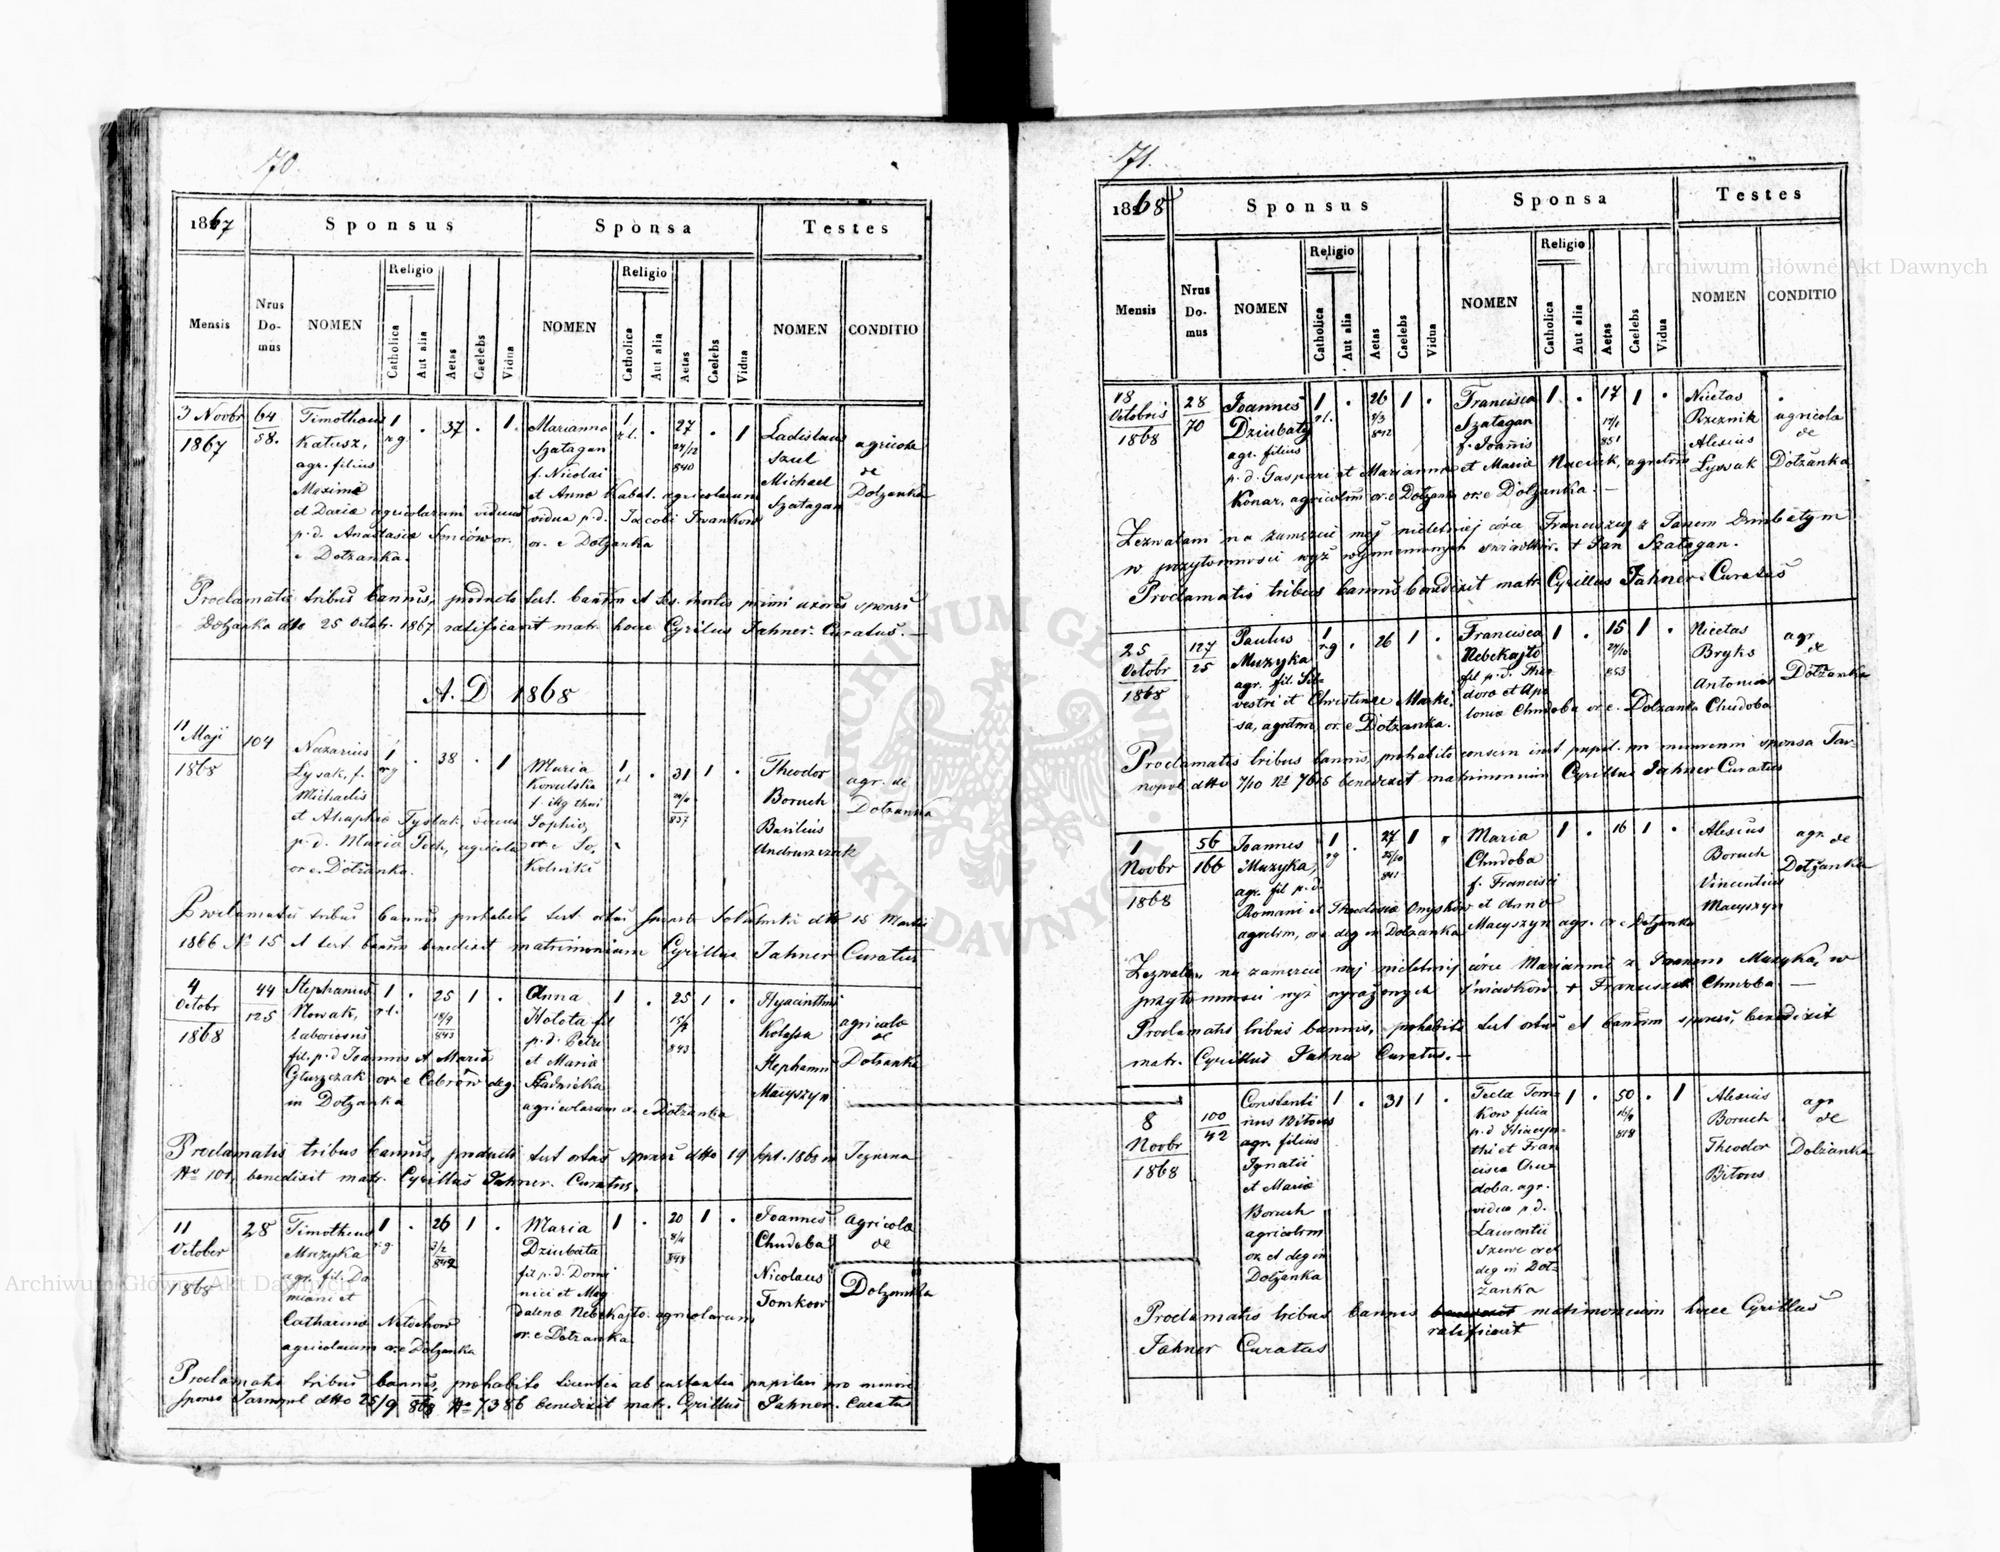 70.
1867
Sponsus
Sponsa
Testes
Mensis
Nrus Domus
NOMEN
Religio
Catholica
Aut alia
Aetas
Caelebs
Vidua
NOMEN
Religio
Catholica
Aut alia
Aetas
Caelebs
Vidua
NOMEN
CONDITIO
3 Novbr
1867
64
58.
Timotheus
Katusz,
agr. filius
Maximi
et Daria agricolarum viduus
p.d. Anastasia or.
e Dołżanka.
1
rg
.
37
.
1.
Marianna
Szatagan
f. Nicolai
et Anna Kabat. agricolarum
vidua p.d. Jacobi Iwankow
or. e Dołżanka
1
r.l.
.
27
24/12
840
.
1
Ladislaus
Szul
Michael
Szatagan
agricola
de
Dolzanka
Proclamatis tribus bannis, producto test. bannor et tes. mortis primi uxoris sponsi
Dołżanka dtto 25 Octobr. 1867 ratificavit matr. hocce Cyrillus Jahner. Curatus. —
A. D 1868
11 Maji
1868
104
Nazarius
Lysak, f.
Michaelis
et Ahaphia Tystak, viduus
p.d. Maria agricola
or e. Dołżanka.
1
rg
.
38
.
1
Maria
Kowalska
f. illg thori
Sophia
or e So,
kolniki
1
rl
.
31
837
1
.
Theodor
Boruch
Basilius
Andruszczak
agr. de
Dolzanka
Proclamatis tribus bannis prohabito test. ortus sponsa dtto 15 Martii
1866 No 15 et test. bannor benedixit matrimonium Cyrillus Jahner Curatus
4
Octobr
1868
44
125
Stephanus
Nowak,
Laboriosus
fil. p.d Joannis et Maria
Gluszczak or e Cebrów deg.
in Dołżanka
1
r.l.
.
25
18/9
843
1
.
Anna
Holota fil
p.d. Petri
et Maria
Hladnicka
agricolarum or. e Dołżanka
1
.
25
843
1
.
Hyacinthus
Kolassa
Stephanus
Macyszyn
agricola
de
Dolzanka
Proclamatis tribus bannis, producti test ortus sponsi dtto 19 Spt. 1868 in Jezierna
No 101, benedixit matr. Cyrillus Jahner. Curatus.
11
October
1868
28
Timotheus
Muzyka
agr. fil. Da
miani et
Catharina Netochow
agricolarum or.e Dołzanka
1
r.g.
.
26
3/2
842
1
.
Maria
Dziubata
fil p.d. Domi
nici et Mag
dalena Nebekajto. agricolarum
or. e Dołzanka.
1
.
20
8/4
848
1
.
Joannes
Chudoba
Nicolaus
Tomkow
agricola
de
Dolzanka
Proclamatis tribus bannis, prohabito licentia ab instantia pupilari pro minori
sponso Tarnopol dtto 25/9 868 No 7386 benedixit matr. Cyrillus Jahner. Curatus
71.
1868
Sponsus
Sponsa
Testes
Mensis
Nrus Domus
NOMEN
Religio
Catholica
Aut alia
Aetas
Caelebs
Vidua
NOMEN
Religio
Catholica
Aut alia
Aetas
Caelebs
Vidua
NOMEN
CONDITIO
18
Octobris
1868
28
70
Joannes
Dziubaty
agr. filius
p.d. Gaspari et Marianna
Konar, agricolm or. e Dołzanka
1
rl.
.
26
3/3
842
1
.
Francisca
Szatagan
f. Joannis
et Maria Naciuk, agrctm
or: e Dołżanka. —
1
.
17
17/1
851
1
.
Nicetas
Rzeznik
Alexius
Lyssak
agricola
de
Dolżanka
Zezwalam na zamęscie mej nieletniej córce Franciszce z Janem Dziubatym
w przytomności wyż wspomnionych swiadków. + Jan Szatagan.
Proclamatis tribus bannis benedixit matr. Cyrillus Jahner. Curatus
25
Octobr
1868
127
25
Paulus
Muzyka
agr. fil. Sil-
vestri et Christinae Marki-
sa, agrctm or. e Dołzanka.
1
rg
.
26
1
.
Francisca
Nebekajto
fil p.d. Theo
dora et Apo
lonia Chudoba or. e. Dolzanka
1
.
15
853
1
.
Nicetas
Bryks
Antonius
Chudoba
agr
de
Dołżanka
Proclamatis tribus bannis, prohabito consens inst pupil. pro minorenni sponsa Tar-
nopol dtto 7/10 No 7615 benedixit matrimonium Cyrillus Jahner Curatus
1
Novbr
1868
56
166
Joannes
Muzyka,
agr. fil p.d.
Romani et Theodosia Onyskow
agrctm, or. e deg in Dolzanka
1
rg
.
27
25/10
841
1
"
Maria
Chudoba
f. Francisci
et Anna
Macyszyn agr. or e Dołzanka
1
.
16
1
.
Alexius
Boruch
Vincentius
Macyszyn
agr. de
Dolżanka
Zezwalam na zamęscie mej nieletniej córce Mariannie z Joanem Muzyką, w
przytomności wyż wyrażonych świadków. + Franciszek Chudoba. —
Proclamatis tribus bannis, prohabito test ortus et bannorm sponsi, benedixit
matr. Cyrillus Jahner Curatus. —
8
Novbr
1868
100
42
Constanti
nus Bitous
agr. filius
Ignatii
et Maria
Boruch
agricolrm
or et deg in
Dołżanka
1
.
31
1
.
Tecla Tom
kow filia
p.d Hiacyn-
thi et Fran
cisca Chu
doba. agr.
vidua p.d.
Laurentii
Szewc or et
deg in Doł-
żanka
1
.
50
16/9
818
.
1
Alexius
Boruch
Theodor
Bitous
agr
de
Dołżanka
Proclamatis tribus bannis benedixit matrimonium hocce Cyrillus
ratificavit
Jahner Curatus
Archiwum Główne Akt Dawnych
Archiwum Główne Akt Dawnych
ARCHIWUM GŁÓWNE AKT DAWNYCH